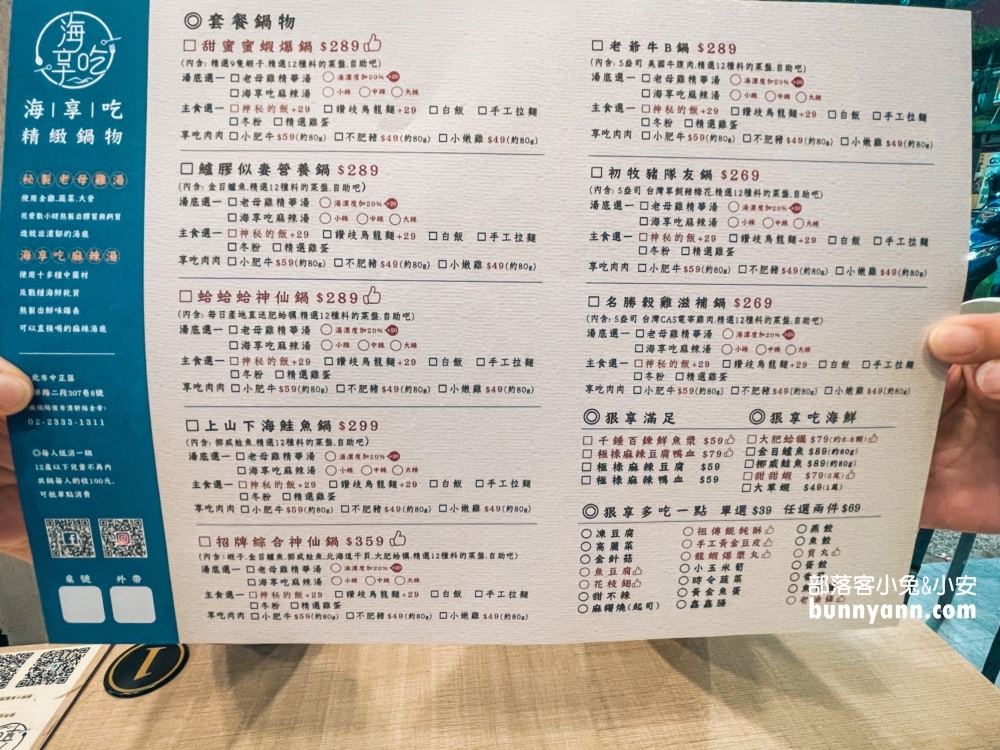 海享吃
海|享|吃
精緻鍋物
秘製老母雞湯
使用全雞.蔬菜.大骨
花費數小時熬製出膠質與鈣質
造就出濃郁的湯底
海享吃麻辣湯
使用十多種中藥材
及數種海鮮乾貨
熬製出鮮味鍋長
可以直接喝的麻辣湯底
北市中正區
路二段307巷8號
02-2333-1311
◎每人低消一鍋
12歲以下兒童不再內
共鍋每人酌收100元.
可抵單點消費
桌號 外帶
◎套餐鍋物
□甜蜜蜜蝦爆鍋 $289
(內含: 精選9隻蝦子.精選12種料的菜盤.自助吧)
湯底選一 □老母雞精華湯 ○湯濃度加20% +20
□海享吃麻辣湯 ○小辣 ○中辣 ○大辣
主食選一 □神秘的飯+29 □讚歧烏龍麵+29 □白飯 □手工拉麵
□冬粉 □精選雞蛋
享吃肉肉 □小肥牛$59(約80g) □不肥豬$49(約80g) □小嫩雞$49(約80g)
□鱸膠似妻營養鍋 $289
(內含: 金目鱸魚.精選12種料的菜盤.自助吧)
湯底選一 □老母雞精華湯 ○湯濃度加20% +20
□海享吃麻辣湯 ○小辣 ○中辣 ○大辣
主食選一 □神秘的飯+29 □讚歧烏龍麵+29 □白飯 □手工拉麵
□冬粉 □精選雞蛋
享吃肉肉 □小肥牛$59(約80g) □不肥豬$49(約80g) □小嫩雞$49(約80g)
□蛤蛤蛤神仙鍋 $289
(內含: 每日產地直送肥蛤蠣.精選12種料的菜盤.自助吧)
湯底選一 □老母雞精華湯 ○湯濃度加20% +20
□海享吃麻辣湯 ○小辣 ○中辣 ○大辣
主食選一 □神秘的飯+29 □讚歧烏龍麵+29 □白飯 □手工拉麵
□冬粉 □精選雞蛋
享吃肉肉 □小肥牛$59(約80g) □不肥豬$49(約80g) □小嫩雞$49(約80g)
□上山下海鮭魚鍋 $299
(內含: 挪威鮭魚.精選12種料的菜盤.自助吧)
湯底選一 □老母雞精華湯 ○湯濃度加20% +20
□海享吃麻辣湯 ○小辣 ○中辣 ○大辣
主食選一 □神秘的飯+29 □讚歧烏龍麵+29 □白飯 □手工拉麵
□冬粉 □精選雞蛋
享吃肉肉 □小肥牛$59(約80g) □不肥豬$49(約80g) □小嫩雞$49(約80g)
□招牌綜合神仙鍋 $359
(內含: 蝦子.金目鱸魚.挪威鮭魚.北海道干貝.大肥蛤蠣.精選12種料的菜盤.自助吧)
湯底選一 □老母雞精華湯 ○湯濃度加20% +20
□海享吃麻辣湯 ○小辣 ○中辣 ○大辣
主食選一 □神秘的飯+29 □讚歧烏龍麵+29 □白飯 □手工拉麵
□冬粉 □精選雞蛋
享吃肉肉 □小肥牛$59(約80g) □不肥豬$49(約80g) □小嫩雞$49(約80g)
□老爺牛B鍋 $289
(內含: 5盎司 美國牛腹肉.精選12種料的菜盤.自助吧)
湯底選一 □老母雞精華湯 ○湯濃度加20% +20
□海享吃麻辣湯 ○小辣 ○中辣 ○大辣
主食選一 □神秘的飯+29 □讚歧烏龍麵+29 □白飯 □手工拉麵
□冬粉 □精選雞蛋
享吃肉肉 □小肥牛$59(約80g) □不肥豬$49(約80g) □小嫩雞$49(約80g)
□初牧豬隊友鍋 $269
(內含: 5盎司 台灣單飼豬梅花.精選12種料的菜盤.自助吧)
湯底選一 □老母雞精華湯 ○湯濃度加20% +20
□海享吃麻辣湯 ○小辣 ○中辣 ○大辣
主食選一 □神秘的飯+29 □讚歧烏龍麵+29 □白飯 □手工拉麵
□冬粉 □精選雞蛋
享吃肉肉 □小肥牛$59(約80g) □不肥豬$49(約80g) □小嫩雞$49(約80g)
□名勝穀雞滋補鍋 $269
(內含: 5盎司 台灣CAS電宰雞肉.精選12種料的菜盤.自助吧)
湯底選一 □老母雞精華湯 ○湯濃度加20% +20
□海享吃麻辣湯 ○小辣 ○中辣 ○大辣
主食選一 □神秘的飯+29 □讚歧烏龍麵+29 □白飯 □手工拉麵
□冬粉 □精選雞蛋
享吃肉肉 □小肥牛$59(約80g) □不肥豬$49(約80g) □小嫩雞$49(約80g)
◎狠享滿足
□千錘百鍊鮮魚漿 $59
□極椽麻辣豆腐鴨血 $79
□極椽麻辣豆腐 $59
□極椽麻辣鴨血 $59
◎狠享吃海鮮
□大肥蛤蠣$79(約6-8顆)
□金目鱸魚$89(約80g)
□挪威鮭魚$89(約80g)
□甜甜蝦 $79(5尾)
□大草蝦 $49(1尾)
◎狠享多吃一點 單選$39 任選兩件$69
○凍豆腐
○高麗菜
○金針菇
○魚豆腐
○花枝翅
○甜不辣
○麻糬燒(起司)
○祖傳餛飩酥
○手工黃金豆皮
○龍蝦爆漿丸
○小玉米筍
○時令蔬菜
○黃金魚蛋
○鑫鑫腸
○燕餃
○魚餃
○貢丸
○蛋餃
部落客小兔&小安
bunnyann.com
1